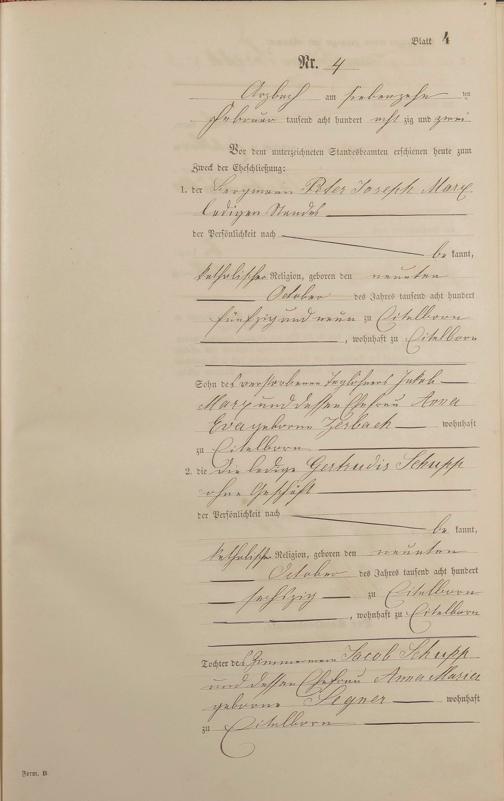 Blatt 4
Nr. 4
Arzbach am siebenzehn ten
Februar tausend acht hundert acht zig und zwei
Vor dem unterzeichneten Standesbeamten erschienen heute zum
Zweck der Eheschließung:
1. der Bergmann Peter Joseph Marx
ledigen Standes
der Persönlichkeit nach
be kannt,
katholischer Religion, geboren den neunten
October des Jahres tausend acht hundert
fünfzig und neun zu Eitelborn
, wohnhaft zu Eitelborn
Sohn des verstorbenen Taglöhners Jakob
Marx und dessen Ehefrau Anna
Eva geborne Zerbach wohnhaft
zu Eitelborn
2. die die ledige Gertrudis Schupp
ohne Geschäft
der Persönlichkeit nach
be kannt,
katholischer Religion, geboren den neunten
October des Jahres tausend acht hundert
sechszig zu Eitelborn
, wohnhaft zu Eitelborn
Tochter des Zimmermann Jacob Schupp
und dessen Ehefrau Anna Maria
geborne wohnhaft
zu Eitelborn
Form. B.